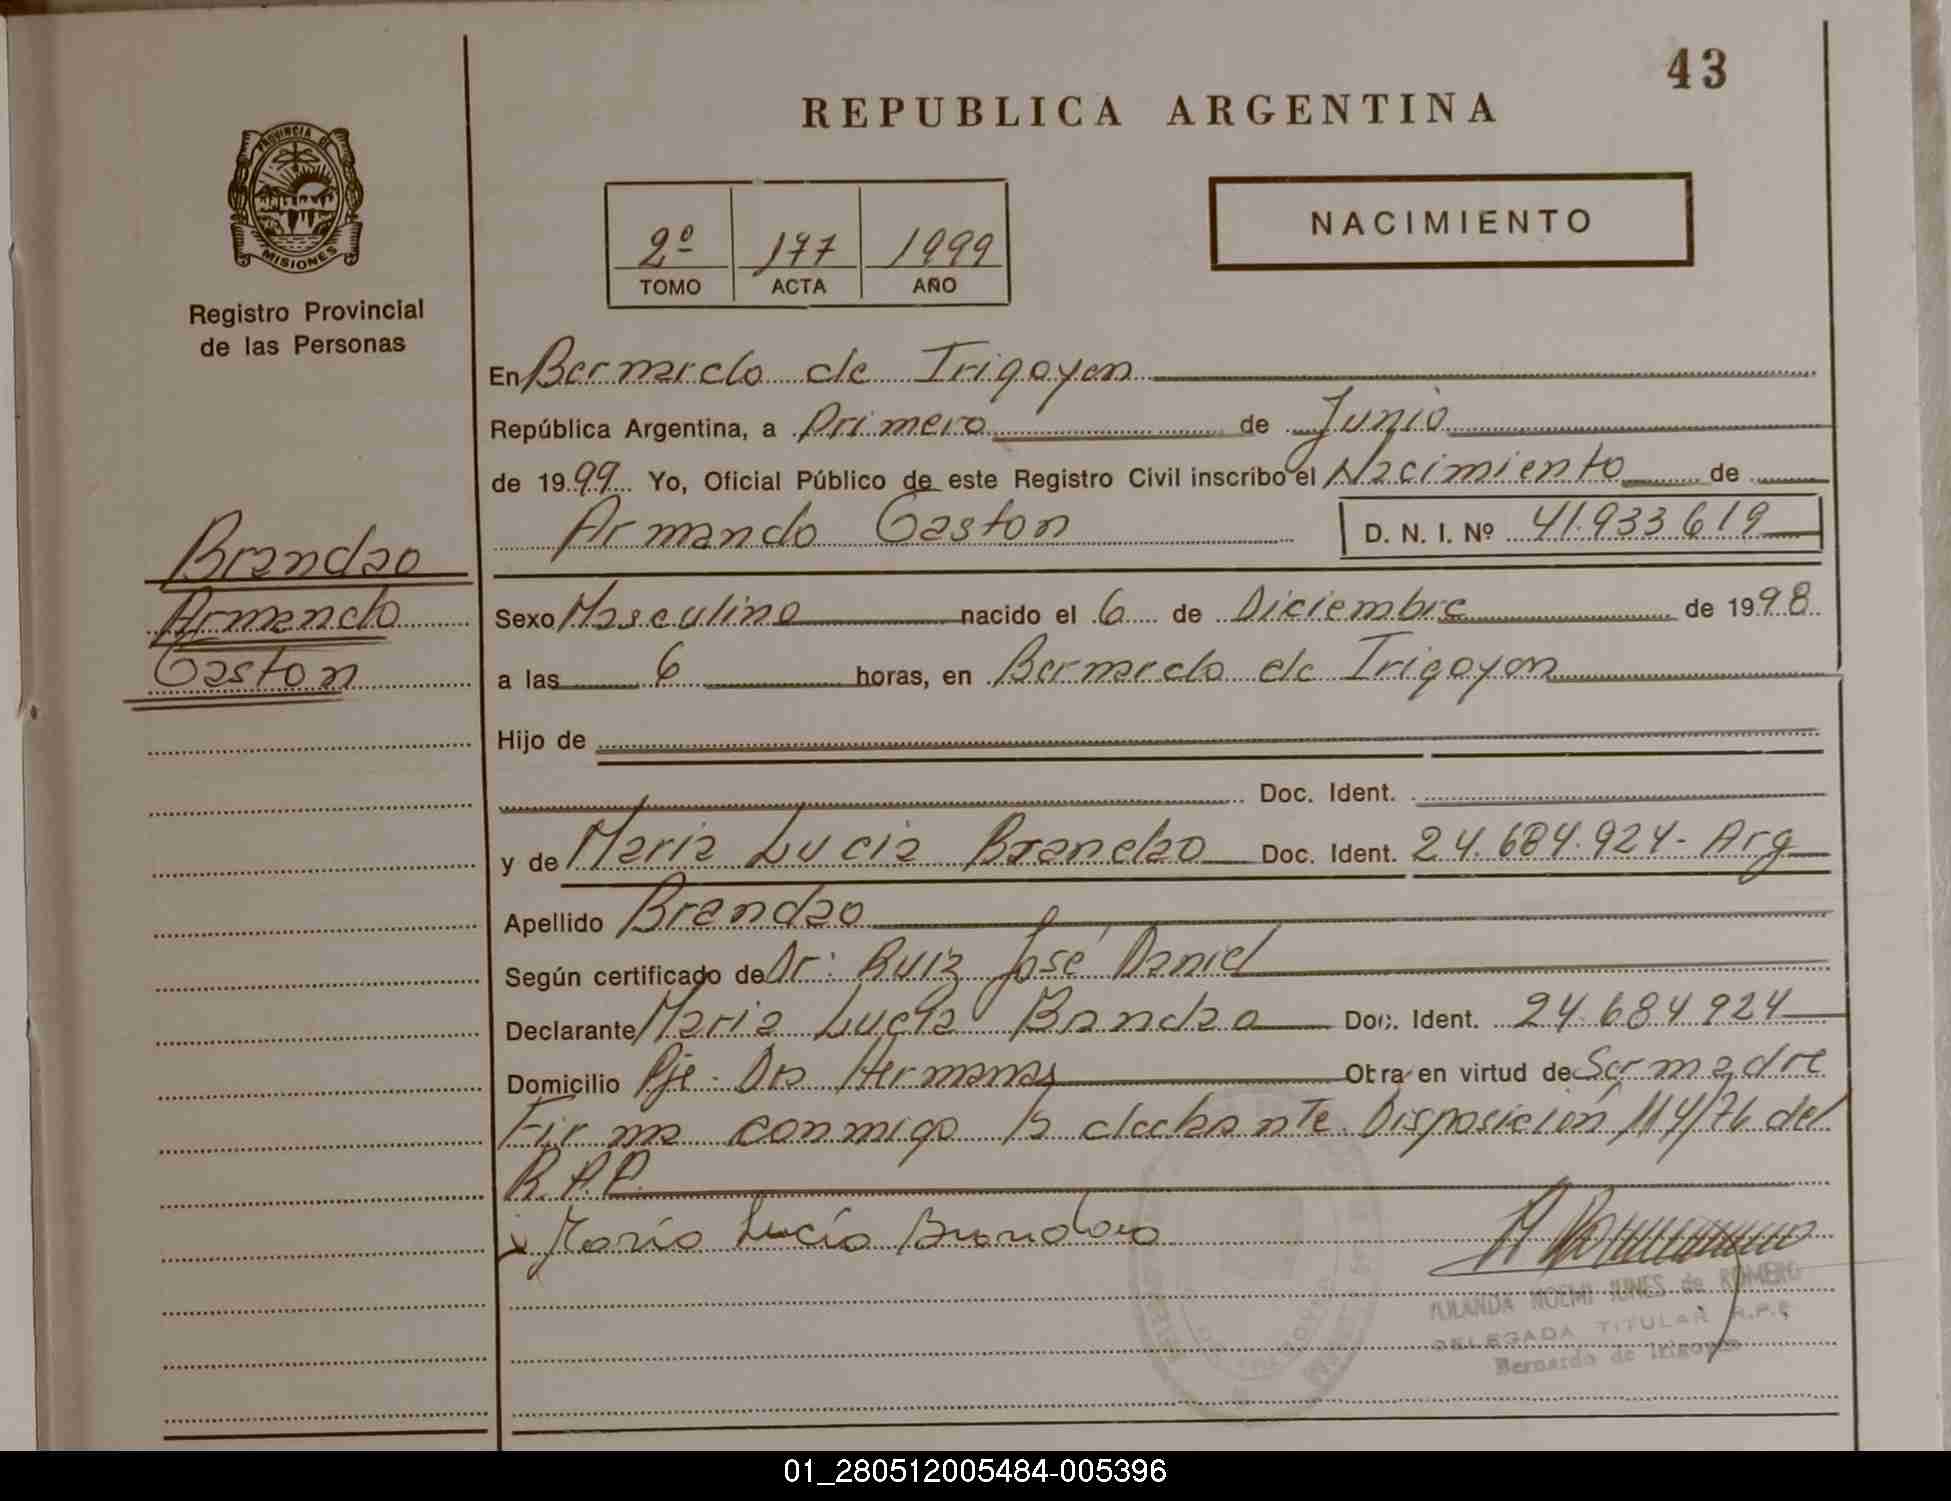 43
REPUBLICA ARGENTINA
PROVINCIA DE
MISIONES
Registro Provincial
de las Personas
2º 177 1999
TOMO ACTA AÑO
NACIMIENTO
En Bernardo de Irigoyen
República Argentina, a Primero de Junio
de 1999 Yo, Oficial Público de este Registro Civil inscribo el Nacimiento de
Armando Gaston D. N. I. Nº 41.933.619
Brandao
Armando
Gaston
Sexo Masculino nacido el 6 de Diciembre de 1998
a las 6 horas, en Bernardo de Irigoyen
Hijo de
Doc. Ident.
y de Maria Lucia Brandao Doc. Ident. 24.684.924- Arg
Apellido Brandao
Según certificado de Dr: Ruiz José Daniel
Declarante Maria Lucia Brandao Doc. Ident. 24.684.924
Domicilio Pje. Dos Hermanas Obra en virtud de Ser madre
Firma conmigo la declarante. Disposición 114/76 del
R.P.P.
x María Lucía Brandao
YOLANDA NOEMI JUNES de ROMERO
DELEGADA TITULAR R.P.P.
Bernardo de Irigoyen
01_280512005484-005396